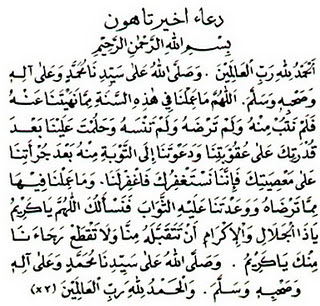 دعاء اخير تاهون
بِسْمِ اللهِ الرَّحْمٰنِ الرَّحِيْمِ
اَلْحَمْدُ لِلّٰهِ رَبِّ الْعَالَمِيْنَ . وَصَلَّى اللهُ عَلَى سَيِّدِنَا مُحَمَّدٍ وَعَلَى آلِهِ
وَصَحْبِهِ وَسَلَّمَ . اَللّٰهُمَّ مَا عَمِلْنَا فِي هٰذِهِ السَّنَةِ مِمَّا نَهَيْتَنَا عَنْهُ
فَلَمْ نَتُبْ مِنْهُ وَلَمْ تَرْضَهُ وَلَمْ تَنْسَهُ وَحَلُمْتَ عَلَيْنَا بَعْدَ
قُدْرَتِكَ عَلَى عُقُوْبَتِنَا وَدَعَوْتَنَا إِلَى التَّوْبَةِ مِنْهُ بَعْدَ جُرْأَتِنَا
عَلَى مَعْصِيَتِكَ فَإِنَّا نَسْتَغْفِرُكَ فَاغْفِرْلَنَا . وَمَا عَمِلْنَا فِيْهَا
مِمَّا تَرْضَاهُ وَوَعَدْتَنَا عَلَيْهِ الثَّوَابَ فَنَسْأَلُكَ اللّٰهُمَّ يَا كَرِيْمُ
يَا ذَا الْجَلَالِ وَالْإِكْرَامِ أَنْ تَتَقَبَّلَهُ مِنَّا وَلَا تَقْطَعْ رَجَاءَنَا
مِنْكَ يَا كَرِيْمُ . وَصَلَّى اللهُ عَلَى سَيِّدِنَا مُحَمَّدٍ وَعَلَى آلِهِ
وَصَحْبِهِ وَسَلَّمَ . وَالْحَمْدُ لِلّٰهِ رَبِّ الْعَالَمِيْنَ (٣×)